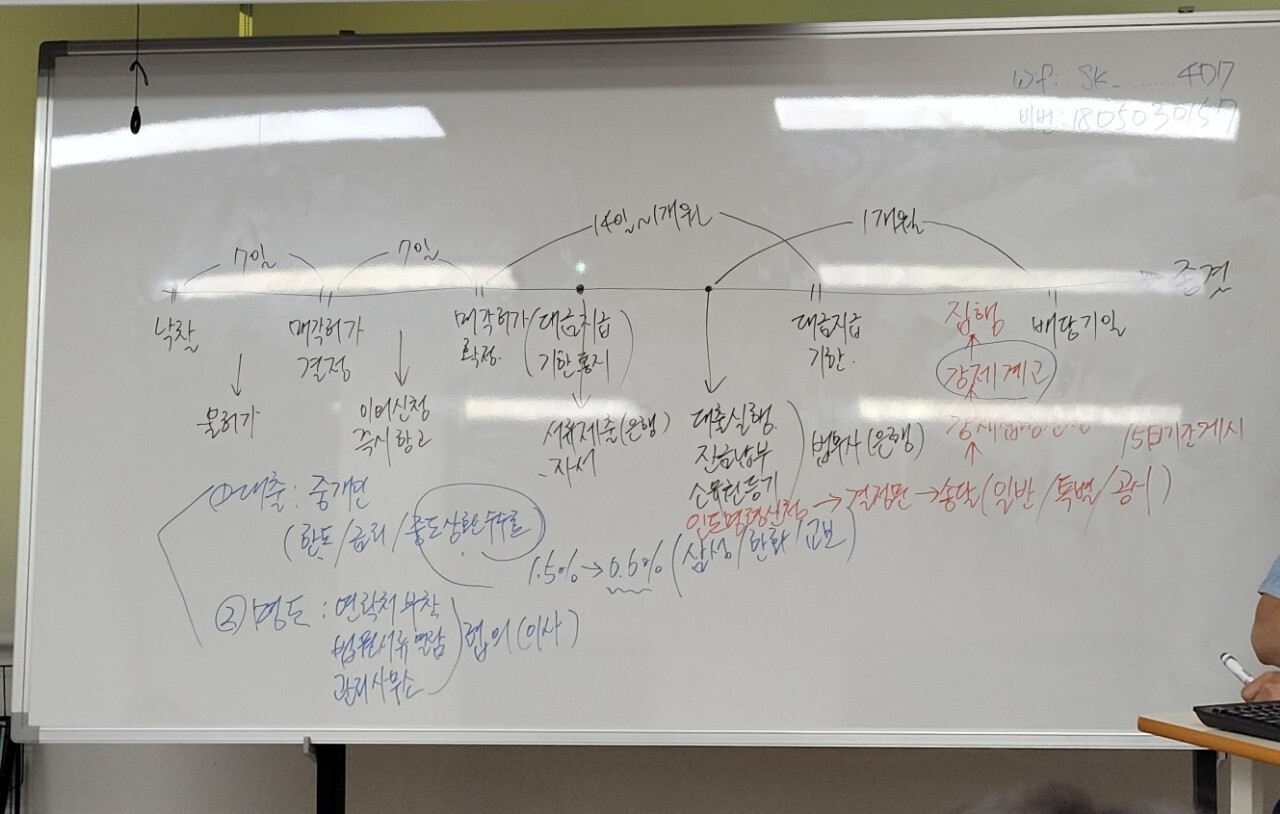 Wifi: SK_........4D17
비번: 1805030157
7일
7일
14일~1개월
1개월
종결
낙찰
매각허가
결정
매각허가
확정.
(대금지급
기한 통지)
대금지급
기한.
집행
배당기일
강제계고
불허가
이의신청
즉시항고
서류제출(은행)
자서
대출실행.
잔금납부
소유권등기
법무사(은행)
15日기간게시
인도명령신청 → 결정문 → 송달(일반/특별/공시)
① 대출 : 중개인
(한도/금리/중도상환수수료
1.5% → 0.6% (삼성/한화/교보)
② 명도 : 연락처 부착
법원서류 열람
관리사무소
협의(이사)